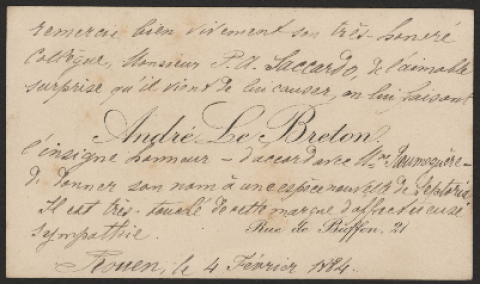 remercie bien vivement son très-honoré
Collègue, Monsieur P. A. Saccardo, de l'aimable
surprise qu'il vient de lui causer, en lui faisant
André Le Breton.
l'insigne honneur – d'accord avec Mme Roumeguère –
de donner son nom à une espèce nouvelle de Septoria.
Il est très-touché de cette marque d'affectueuse
Rue de Buffon, 21
sympathie.
Rouen, le 4 Février 1884.